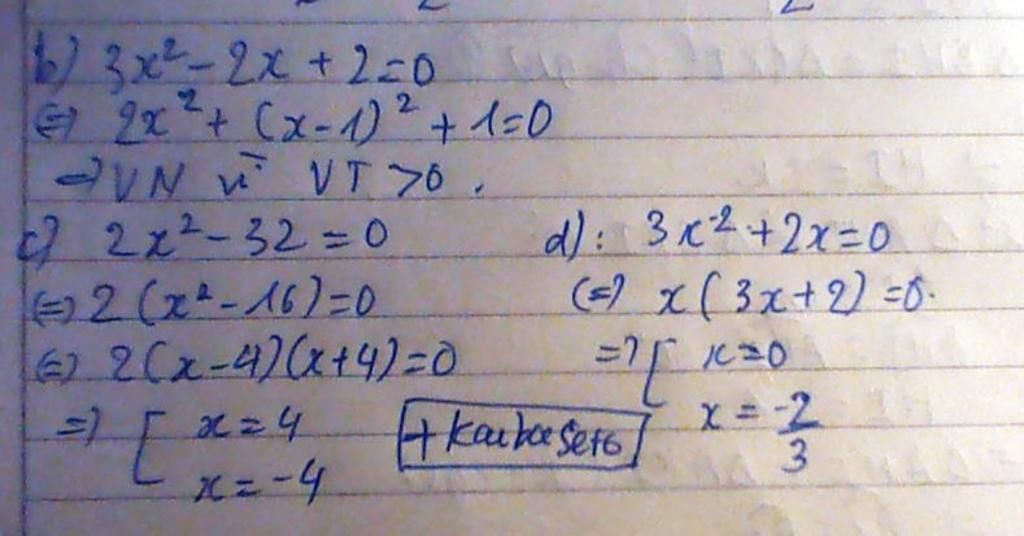 b) 3x² - 2x + 2 = 0
⇔ 2x² + (x-1)² + 1 = 0
⇒ VN vì VT > 0.
c) 2x² - 32 = 0
⇔ 2(x² - 16) = 0
⇔ 2(x-4)(x+4) = 0
⇒ [ x = 4
x = -4
d): 3x² + 2x = 0
⇔ x(3x+2) = 0.
⇒ [ x = 0
x = -2/3